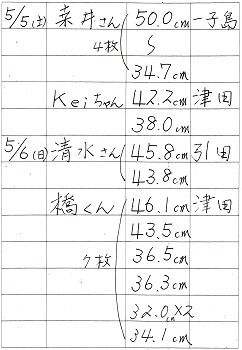 5/5(土) 菜井さん 50.0cm 一子島
4枚 〜
34.7cm
Keiちゃん 42.2cm 津田
38.0cm
5/6(日) 清水さん 45.8cm 引田
43.8cm
橋くん 46.1cm 津田
43.5cm
7枚 36.5cm
36.3cm
32.0cm×2
34.1cm